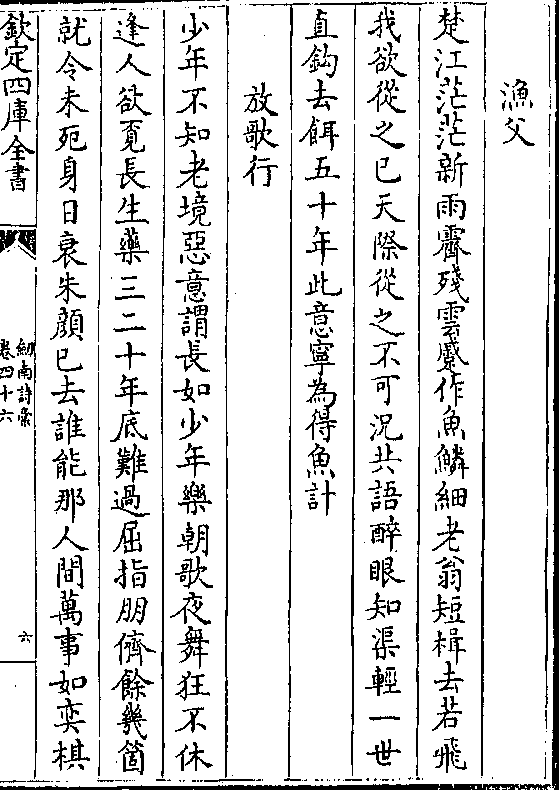 漁父
楚江茫茫新雨霽殘雲蹙作魚鱗細老翁短楫去若飛
我欲從之已天際從之不可況共語醉眼知渠輕一世
直鈎去餌五十年此意寧為得魚計
放歌行
少年不知老境惡意謂長如少年樂朝歌夜舞狂不休
逢人欲覓長生藥三二十年底難過屈指朋儕餘幾箇
就令未死身日衰朱顔已去誰能那人間萬事如奕棋
欽定四庫全書
劒南詩稾
卷四十六
六